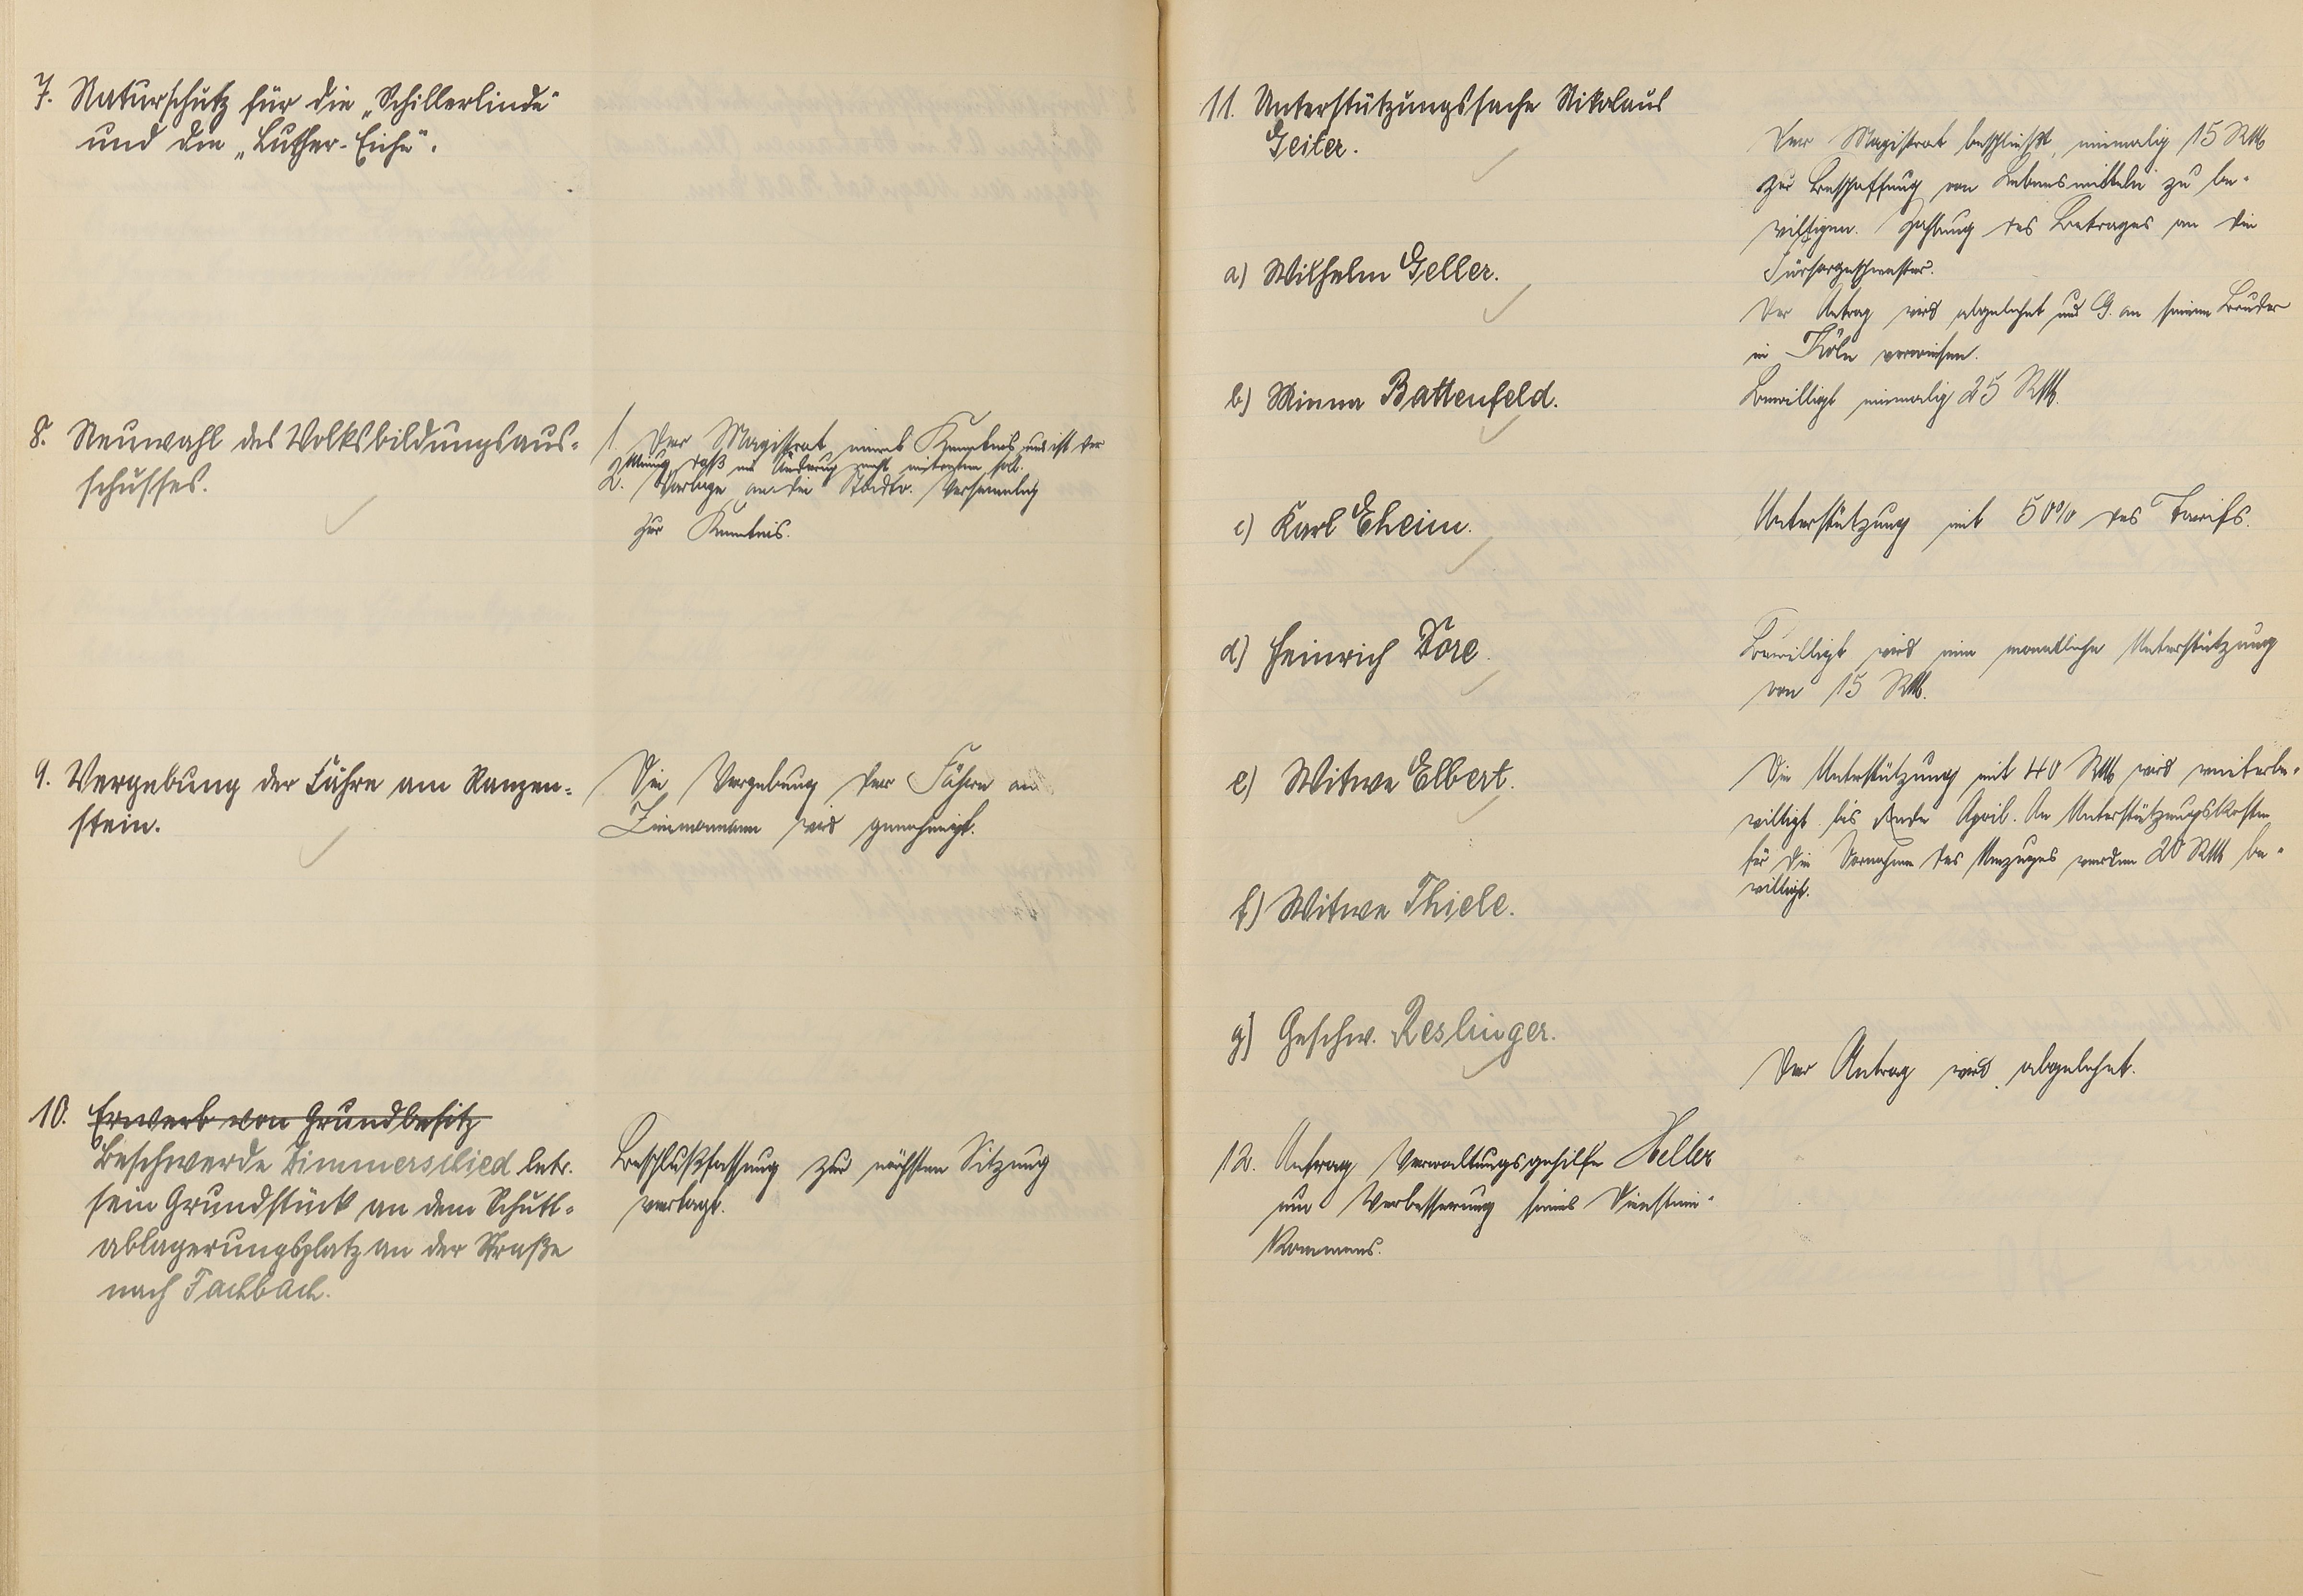 7. Naturschutz für die „Schillerlinde"
und die „Luther-Eiche".
8. Neuwahl des Volksbildungsaus-
schusses.
1. Der Magistrat nimmt Kenntnis und ist der
Meinung, daß eine Änderung nicht eintreten soll.
2. Vorlage an die Stadtv. Versammlung
zur Kenntnis.
9. Vergebung der Fähre am Ranzen-
stein.
Die Vergebung der Fähre an
Zimmermann wird genehmigt.
10. Erwerb von Grundbesitz
Beschwerde Zimmerschied betr.
sein Grundstück an dem Schutt-
ablagerungsplatz an der Straße
nach Fachbach.
Beschlußfassung zur nächsten Sitzung
vertagt.
11. Unterstützungssache Nikolaus
Geiter.
Der Magistrat beschließt, einmalig 15 RM
zur Beschaffung von Lebensmitteln zu be-
willigen. Zahlung des Betrages an die
Fürsorgeschwester.
a) Wilhelm Geller.
Der Antrag wird abgelehnt und G. an seinen Bruder
in Köln verwiesen.
b) Minna Battenfeld.
Bewilligt einmalig 25 RM.
c) Karl Eheim.
Unterstützung mit 50% des Tarifs.
d) Heinrich Dore.
Bewilligt wird eine monatliche Unterstützung
von 15 RM.
e) Witwe Elbert.
Die Unterstützung mit 40 RM wird weiterbe-
willigt bis Ende April. An Unterstützungskosten
für die Vornahme des Umzuges werden 20 RM be-
willigt.
f) Witwe Thiele.
g) Geschw. Reslinger.
Der Antrag wird abgelehnt.
12. Antrag Verwaltungsgehilfe Heller
um Verbesserung seines Dienstein-
kommens.